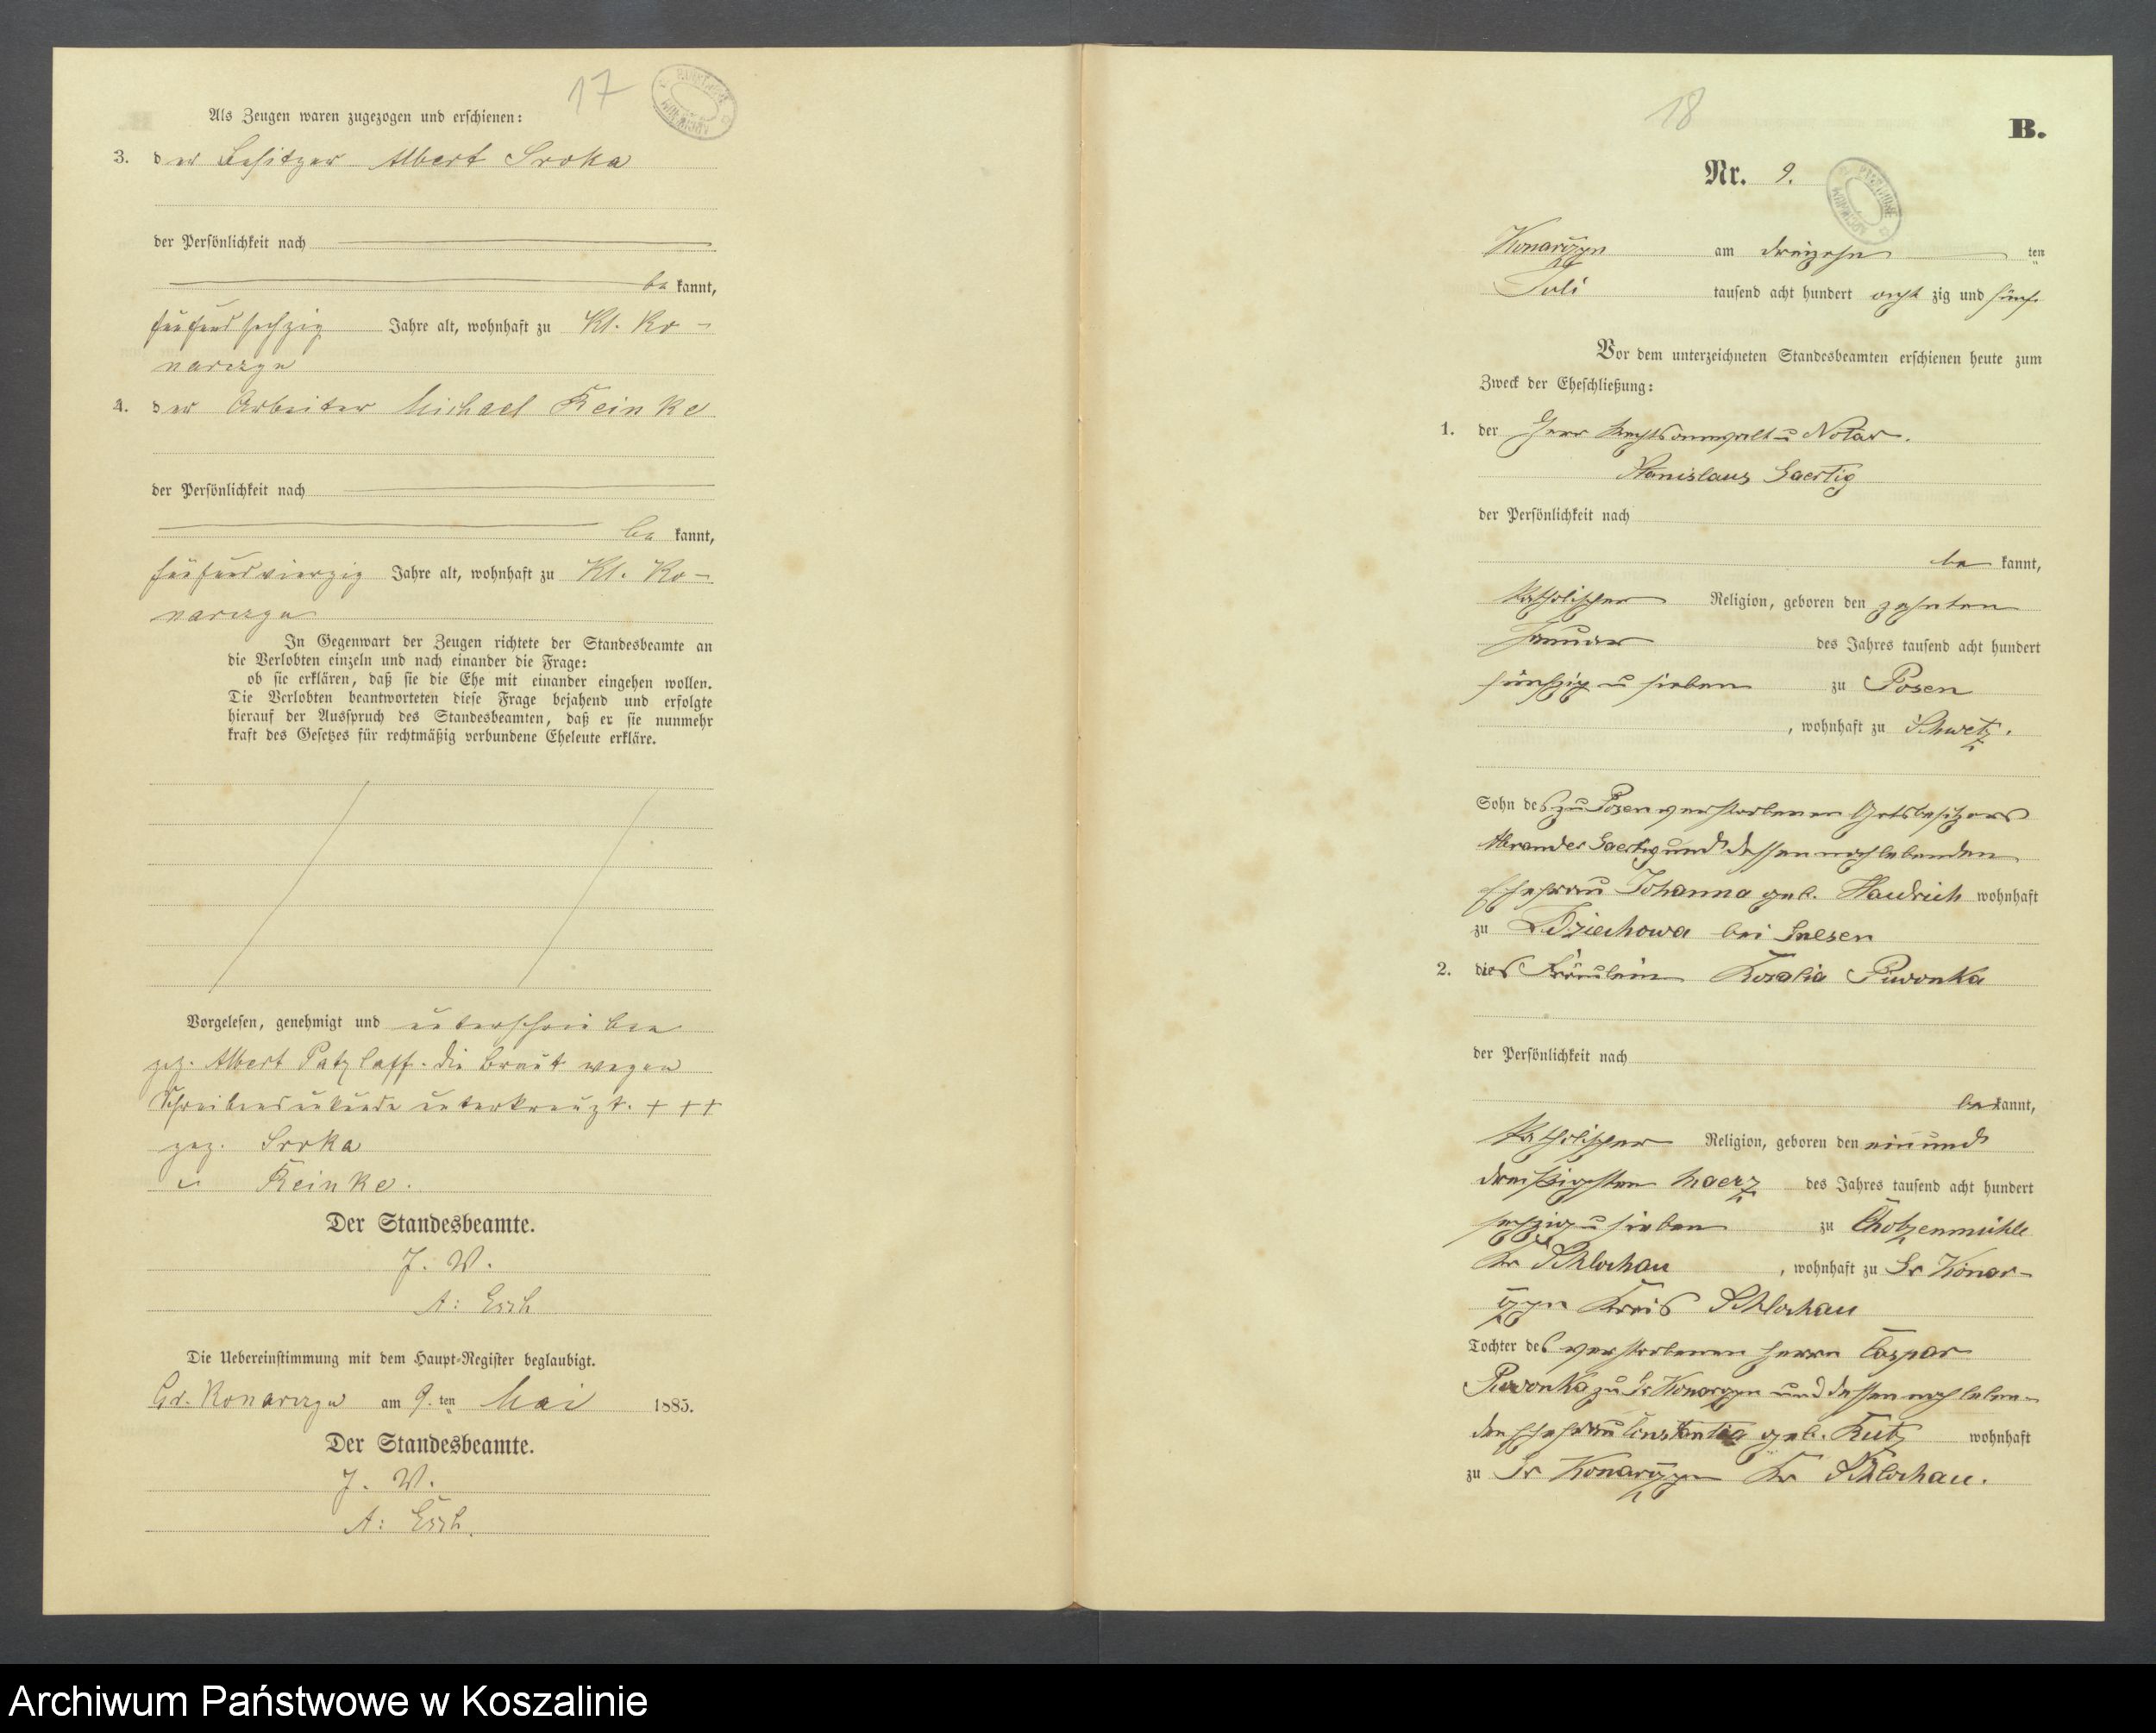 17
Als Zeugen waren zugezogen und erschienen:
3. der Besitzer Albert Sroka
der Persönlichkeit nach
be kannt,
fünfundsechzig Jahre alt, wohnhaft zu Kl. Ko-
narczyn
4. der Arbeiter Michael Reinke
der Persönlichkeit nach
be kannt,
fünfundvierzig Jahre alt, wohnhaft zu Kl. Ko-
narczyn
In Gegenwart der Zeugen richtete der Standesbeamte an
die Verlobten einzeln und nach einander die Frage:
ob sie erklären, daß sie die Ehe mit einander eingehen wollen.
Die Verlobten beantworteten diese Frage bejahend und erfolgte
hierauf der Ausspruch des Standesbeamten, daß er sie nunmehr
kraft des Gesetzes für rechtmäßig verbundene Eheleute erkläre.
Vorgelesen, genehmigt und unterschrieben
gez. Albert Patzlaff. die Braut wegen
Schreibensunkunde unterkreuzt. + + +
gez. Sroka
" Reinke.
Der Standesbeamte.
J. V.
A: Esch
Die Uebereinstimmung mit dem Haupt-Register beglaubigt.
Gr. Konarczyn am 9. ten Mai 1885.
Der Standesbeamte.
J. V.
A: Esch.
18
B.
Nr. 9.
Konarczyn am dreizehn ten
Juli tausend acht hundert acht zig und fünf.
Vor dem unterzeichneten Standesbeamten erschienen heute zum
Zweck der Eheschließung:
1. der Herr Rechtsanwalt u Notar.
Stanislaus Gaertig
der Persönlichkeit nach
be kannt,
katholischer Religion, geboren den zehnten
Januar des Jahres tausend acht hundert
fünfzig u sieben zu Posen
, wohnhaft zu Schwetz.
Sohn des zu Posen verstorbenen Gutsbesitzers
Gaertig und dessen noch lebenden
Ehefrau Johanna geb. Haudrich wohnhaft
zu Dziechowa bei Gnesen
2. die Fräulein Rosalia Piwonka
der Persönlichkeit nach
be kannt,
katholischer Religion, geboren den ein und
dreißigsten Maerz des Jahres tausend acht hundert
sechzig u sieben zu Chotzenmühle
Kr Schlochau , wohnhaft zu Gr Konar-
czyn Kreis Schlochau
Tochter des verstorbenen Herrn Caspar
Piwonka zu Gr Konarczyn und dessen noch leben-
den Ehefrau Constantia geb. Rutz wohnhaft
zu Gr Konarczyn Kr Schlochau.
Archiwum Państwowe w Koszalinie